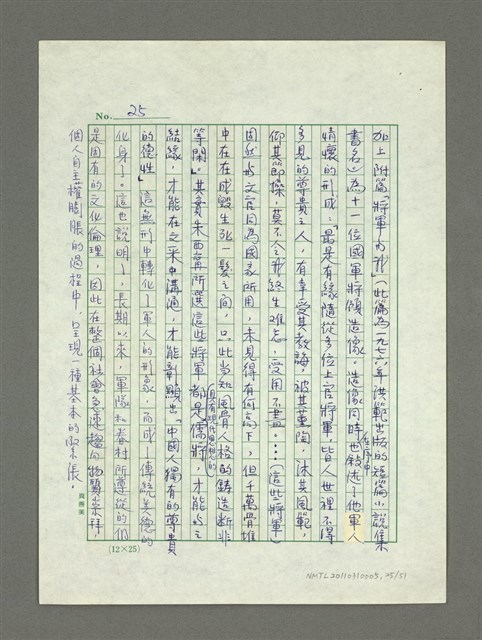 No. 25
加上附篇〈將軍的淚〉（此篇為一九七六年洪範出版的短篇小說集
書名）為十一位國軍將領造像。造像同時也敍述了他軍人
在序中
情懷的形成：「最是有緣隨從多位上官將軍，皆人世裡不得
多見的尊貴之人，有幸受其教誨，被其薰陶，沐其風範，
仰其節操，莫不令我終生難忘，受用不盡。……（這些將軍）
固然於文官因為國家所用，未見得有何高下，但千萬骨堆
中在在成毀生死一髮之間，只此當知風骨人格的鑄造斷非
等閑」。其實朱西甯所選這些將軍都是儒將，才能與之
具有現代思想的
結緣，才能在文采中溝通，才能彰顯出「中國人獨有的尊貴
的德性」。這無形中轉化了軍人的形象，而成了傳統美德的
化身了。這也說明了，長期以來，軍隊和眷村所遵從的仍
是固有的文化倫理，因此在整個社會急速趨向物質崇拜，
個人自主權膨脹的過程中，呈現一種基本的緊張。
(12×25)
NMTL20110310005, 25/51